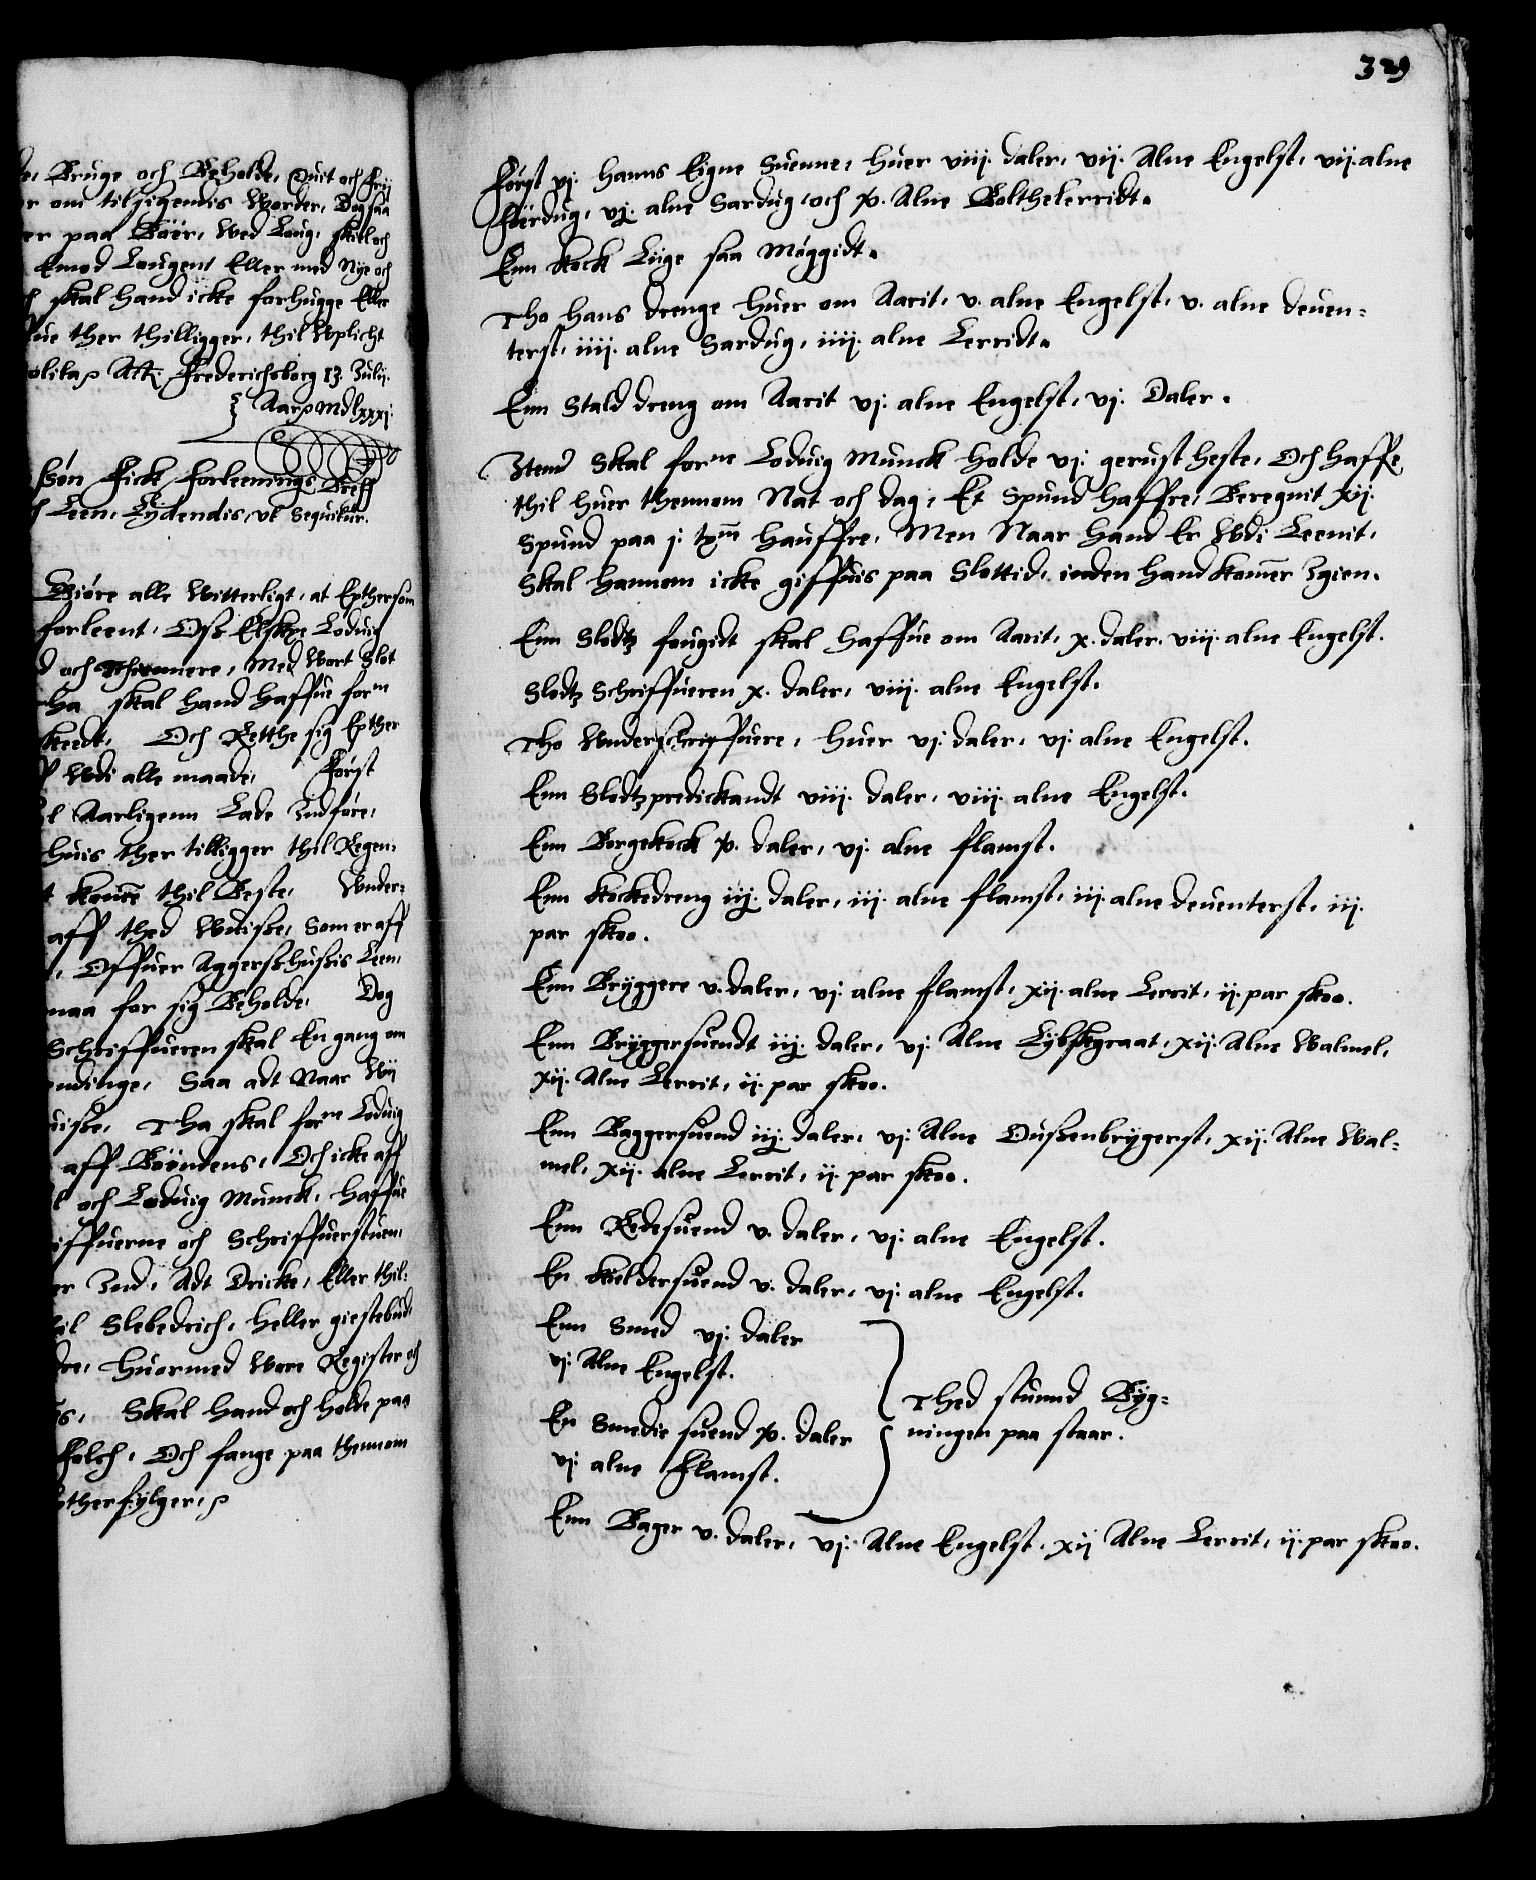 329
de, Bruge och Beholde, Quit och frij
r om tilsigendis Worder, Dog saa
er paa Böer, Wed Loug, skiel och
Emod Lougenn Eller med Nye och
h skal hand icke forhugge Eller
lue ther thilligger, thil Wplicht
olikap Act. Frederichsborg 13. Julij.
Aarp Mdlxxxj.
ssön Fick forleenings Breff
Leen, Lydendis, vt Sequitur.
Giöre alle Witterligt, at Epthersom
forleent, Oss Elskpe Loduig
d och thiennere, Med Wort Slot
Tha skal hand haffue forne
skeedt, Och Retthe sig Epther
Wdi alle maade, Först
l Aarligenn Lade Indföre,
huis ther tilligger thil Regen-
t komme thil Beste, Wnder-
aff thed Wuisse, Som er aff
, Offuer Aggersshussis Leen,
maa for sig Beholde, Dog
Schriffueren skal En gang om
endinge, Saa adt Naar Wij
uisse, Tha skal forne Loduig
aff Böndens, Och icke aff
l och Loduig Munck, haffue
iffuerne och Schriffuerstuen,
er Ind, Adt Dricke, Eller thil-
til Slebedrich, heller giestebud,
dre, huormed Wore Register och
is, Skal hand och holde paa
folch, Och fange paa thennom
ptherfylger,
Först xj. hanns Eigne Suenne, huer viij. daler, vij. Alne Engelst, vij. alne
Fördug, vj. alne Sardug, och x. Alne Boltthelerridt.
Enn Kock Liige saa Möggidt.
Tho hans drenge huer om Aarit, v. alne Engelst, v. alne deuen-
terst, iiij. alne Sardug, iiij. alne Lerridt.
Enn Stald dreng om Aarit vj. alne Engelst, vj. Daler.
Item Skal forne Loduig Munck holde vj. gerust heste, Och haffe
thil huer thennom Nat och dag, Et Spund haffre, Beregnit xij.
Spund paa j. thm hauffre, Men Naar hand Er Wdi Leenit,
Skal hannom icke giffuis paa Slottid, inden hand kommer Igien.
Enn Slodtz fougidt skal haffue om Aarit, x. daler. viij. alne Engelst.
Slodtz Schriffueren x. daler, viij. alne Engelst.
Tho Wnderschriffuere, huer vj. daler, vj. alne Engelst.
Enn Slodtzpredickandt viij. daler, viij. alne Engelst.
Enn Borgekock x. daler, vj. alne flamst.
Enn Kockedreng iij. daler, iij. alne flamst, iij. alne deuenterst, iij.
par skoo.
Enn Bryggere v. daler, vj. alne flamst, xij. alne Lerrit, ij. par skoo.
Enn Bryggersuendt iij. daler, vj. Alne Lybskgraat, xij. Alne Walmel,
xij. Alne Lerrit, ij. par skoo.
Enn Baggersuend iij. daler, vj. Alne Oussenbrygerst, xij. Alne Wal-
mel, xij. alne Lerrit, ij. par skoo.
Enn Redesuend v. daler, vj. alne Engelst.
En Kieldersuend v. daler, vj. alne Engelst.
Enn Smed vj. daler
vj. Alne Engelst.
En Smedie suend x. daler
vj. alne Flamst.
Thed stuind Byg-
ningen paa staar.
Enn Bager v. daler, vj. Alne Engelst, xij Alne Lerrit, ij. par skoo.